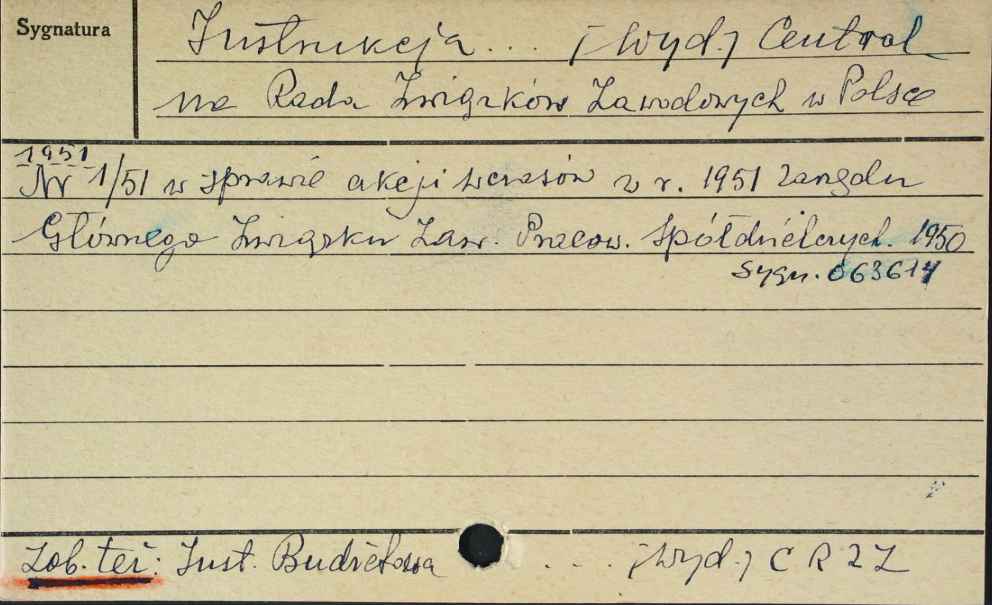 Sygnatura
Instrukcja .... [Wyd.] Central
na Rada Związków Zawodowych w Polsce
1951
Nr 1/51 w sprawie akcji wczasów w r. 1951 Zarządu
Głównego Związku Zaw. Pracow. Spółdzielczych. 1950
Sygn. 063614
Zob. też: Inst. Budżetowa .... [Wyd.] C R Z Z